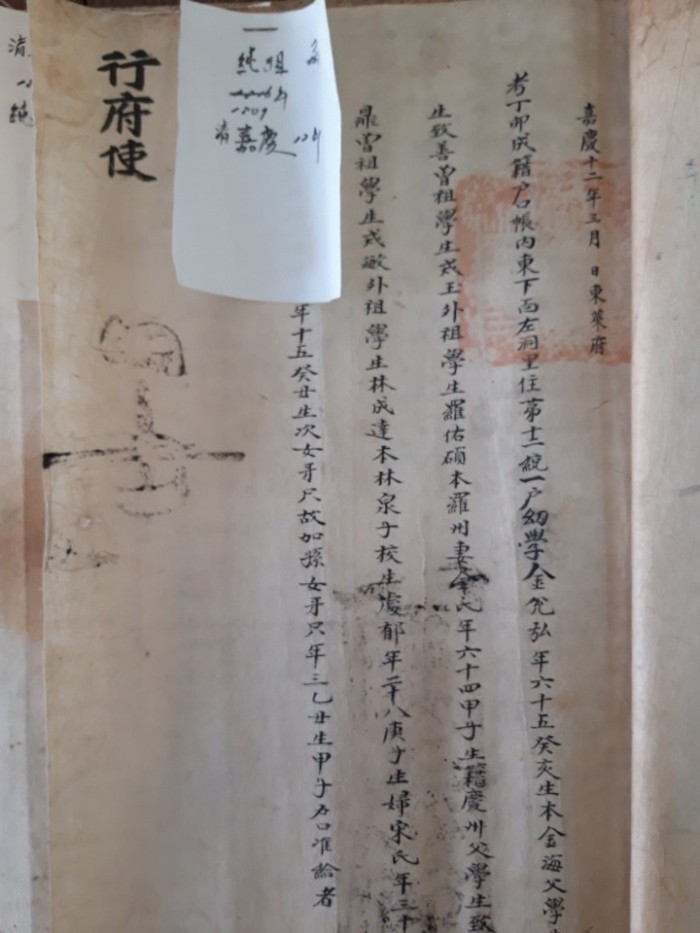 嘉慶十二年三月 日東萊府
考丁卯成籍戶口帳內東下面左洞里住第十二統一戶幼學金允弘年六十五癸亥生本金海父學生
生致善曾祖學生或玉外祖學生羅佑碩本羅州妻金氏年六十四甲子生籍慶州父學生致
曾祖學生或敏外祖學生林成達本林泉子校生慶郁年二十八庚子生婦宋氏年三十
年十五癸丑生次女牙只故加孫女牙只年三乙丑生甲子戶口准給者
行府使
純祖
1807
清嘉慶 12年
清
純